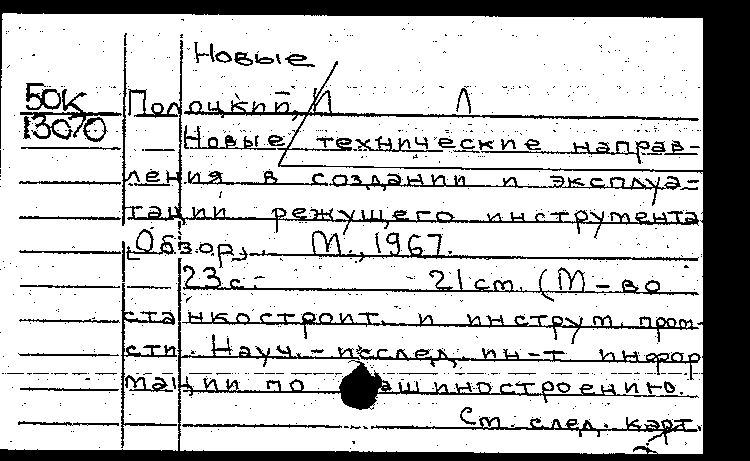 Новые
50К Полоцкий, И Л
13070 Новые технические направ-
ления в создании и эксплуа-
тации режущего инструмента
[Обзор]. М., 1967.
23 с. 21 см. (М-во
станкостроит. и инструм. пром-
сти. Науч.-исслед. ин-т инфор
мации по машиностроению.
См. след. карт.